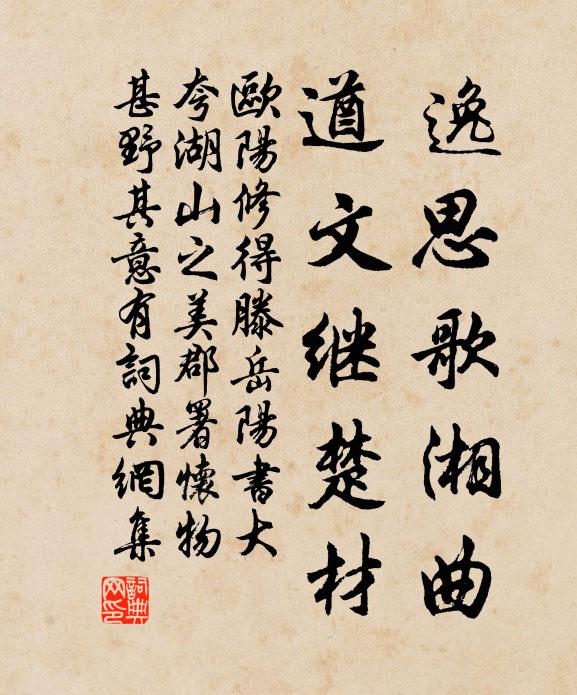 逸思歌湘曲
遒文继楚材
歐陽修得滕岳陽書大
夸湖山之美郡署懷物
甚野其意有詞典網集
詞典
网印